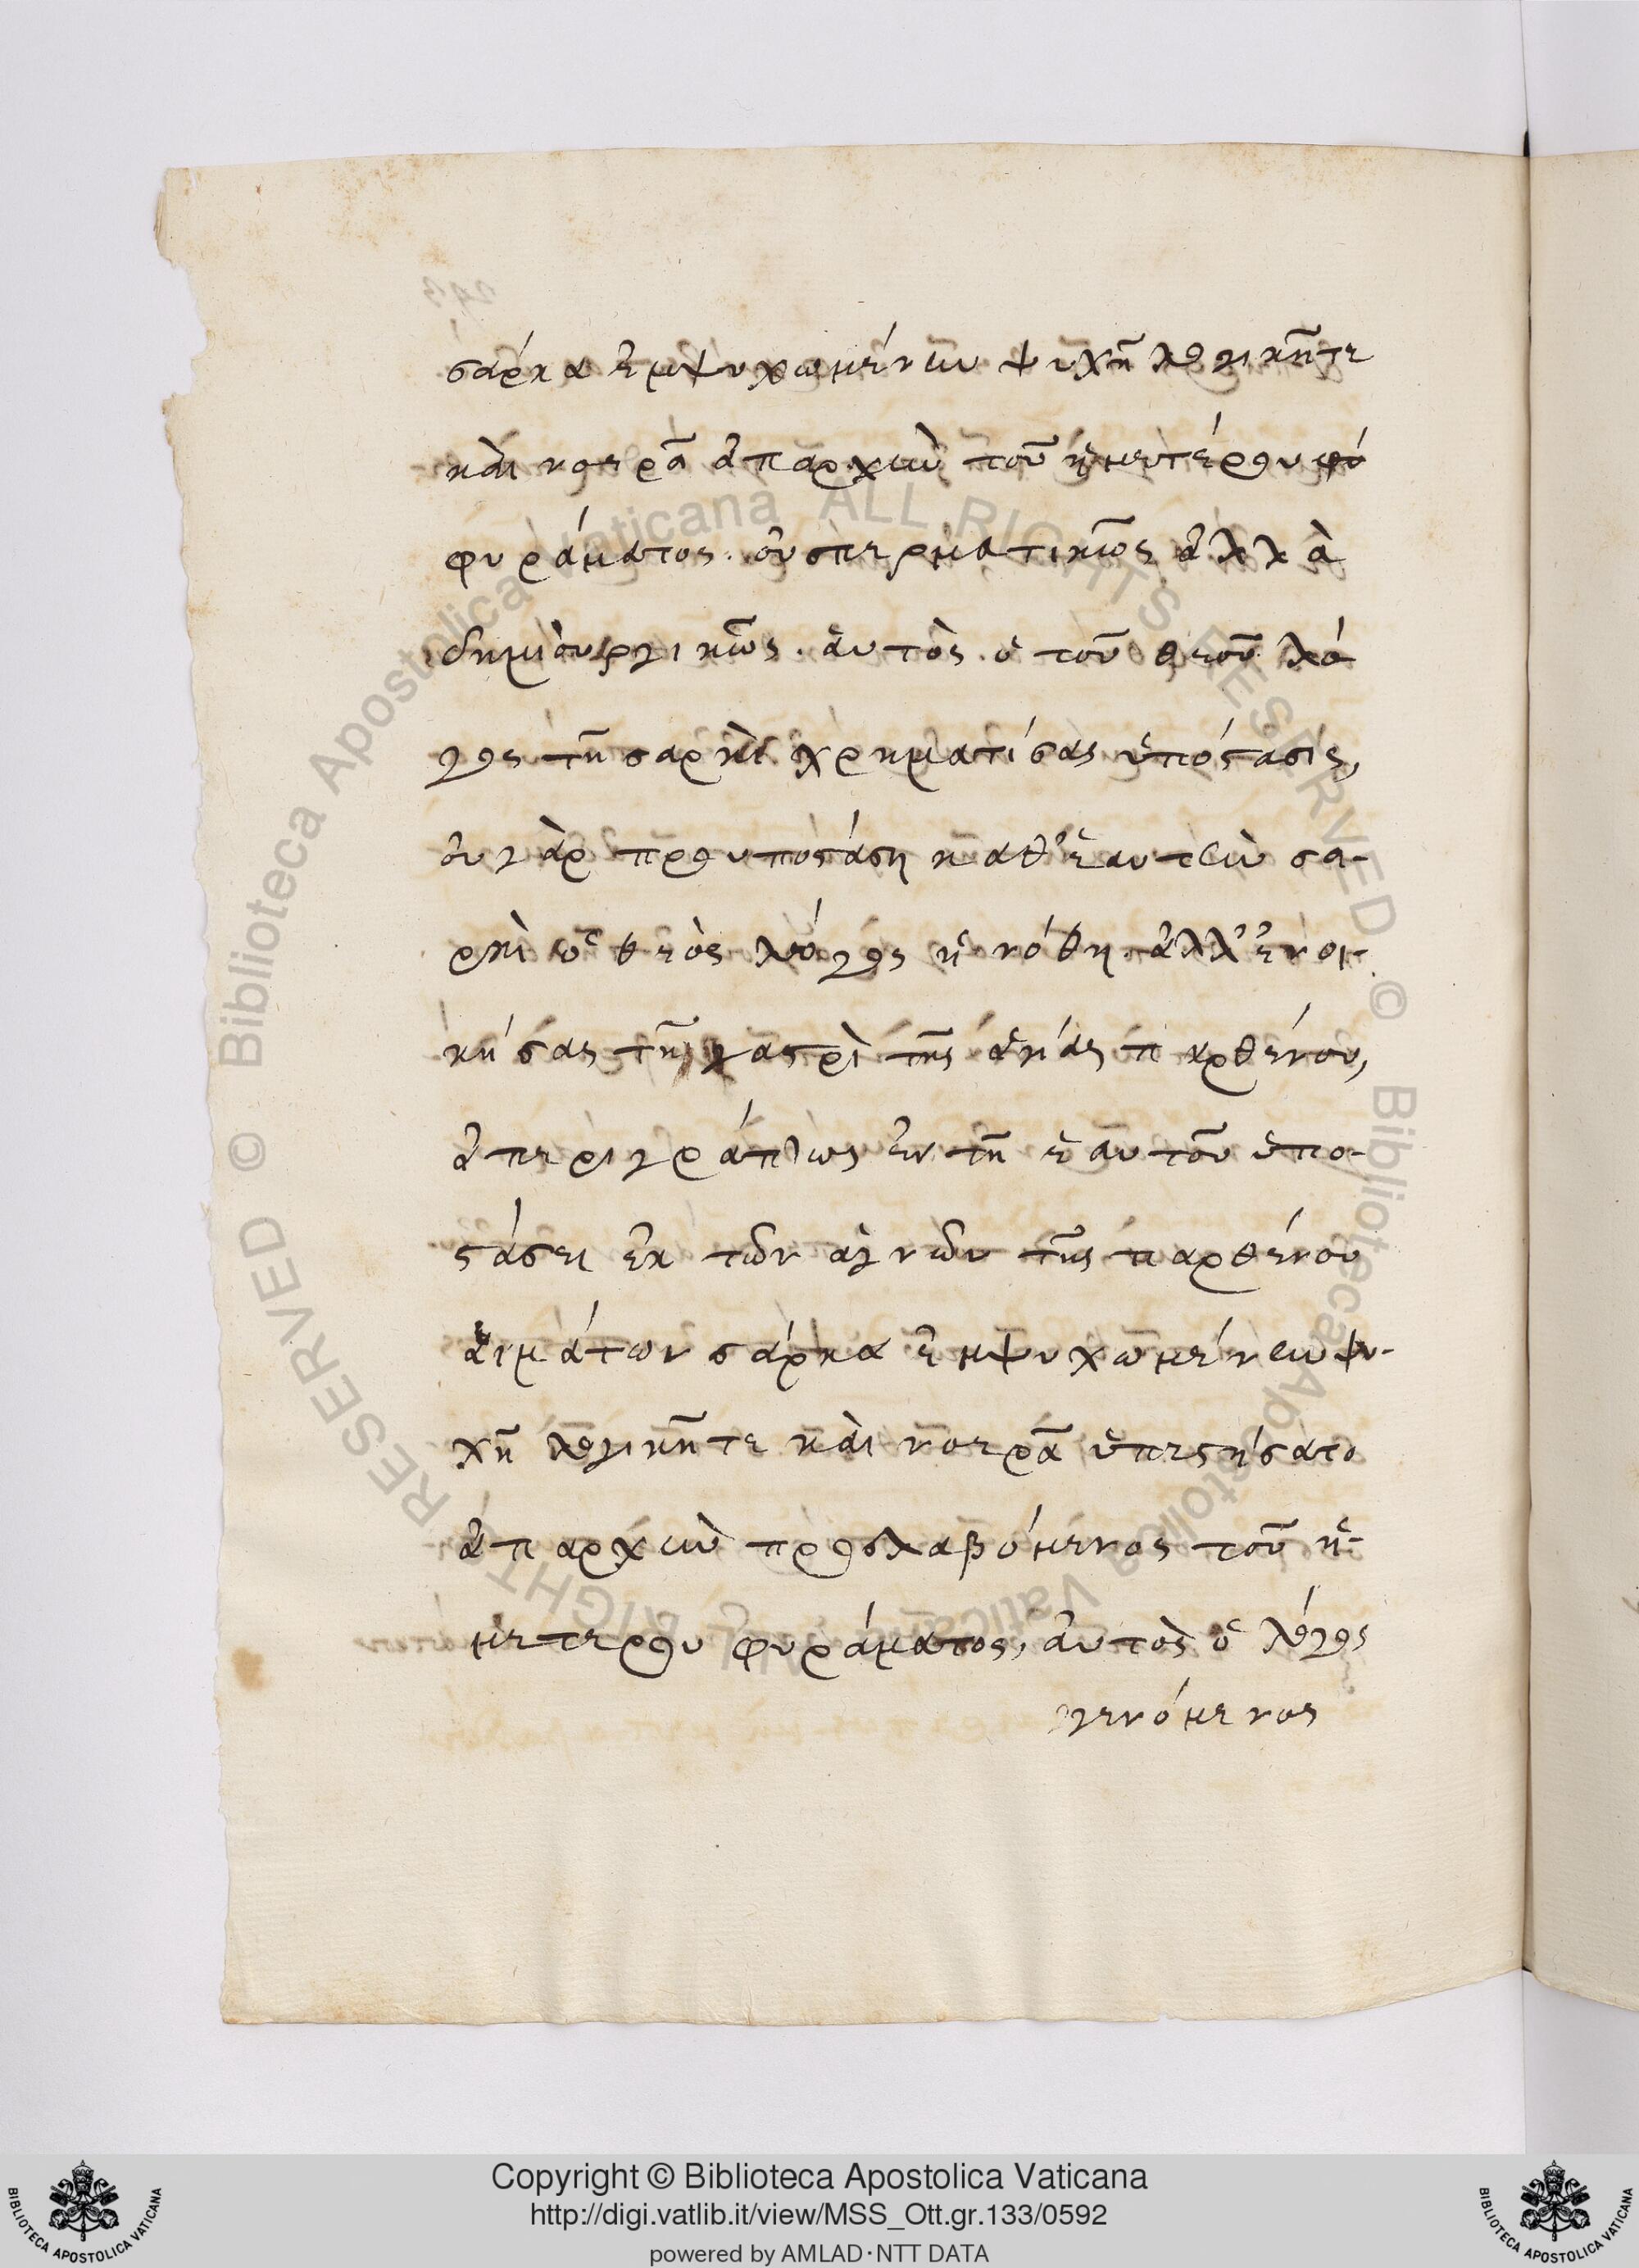 σάρκα ἐμψυχωμένην ψυχῆ λογικῆτε
καὶ νοερᾶ ἀπαρχὴν τοῦ ἡμετέρου φύ
φυράματος. οὐ σπερματικῶς ἀλλὰ
δημιουργικῶς. ἀυτὸς ὁ τοῦ θεοῦ λό
γος τῆ σαρκὶ χρηματίσας ὑπόστασις,
ου γὰρ προυποστάση καθ' ἑαυτὴν σα-
ρκὶ ὁ θεὸς λόγος ἡνόθη. ἀλλ' ἐνοι-
κήσας τῆ γαστρὶ τῆς ἁγίας παρθένου,
ἀπεριγράπτως ἐν τῆ ἑαυτοῦ ὑπο-
στάσει ἐκ τῶν ἁγνῶν τῆς παρθένου
ἁιμάτων σάρκα ἐμψυχωμένην ψυ-
χῆ λογικῆτε καὶ νοερᾶ ὑπεστήσατο
ἀπαρχὴν προσλαβόμενος τοῦ ἡ-
μετερου φυράματος, ἀυτὸς ὁ λόγος
γενόμενος
Copyright © Biblioteca Apostolica Vaticana
http://digi.vatlib.it/view/MSS_Ott.gr.133/0592
powered by AMLAD·NTT DATA